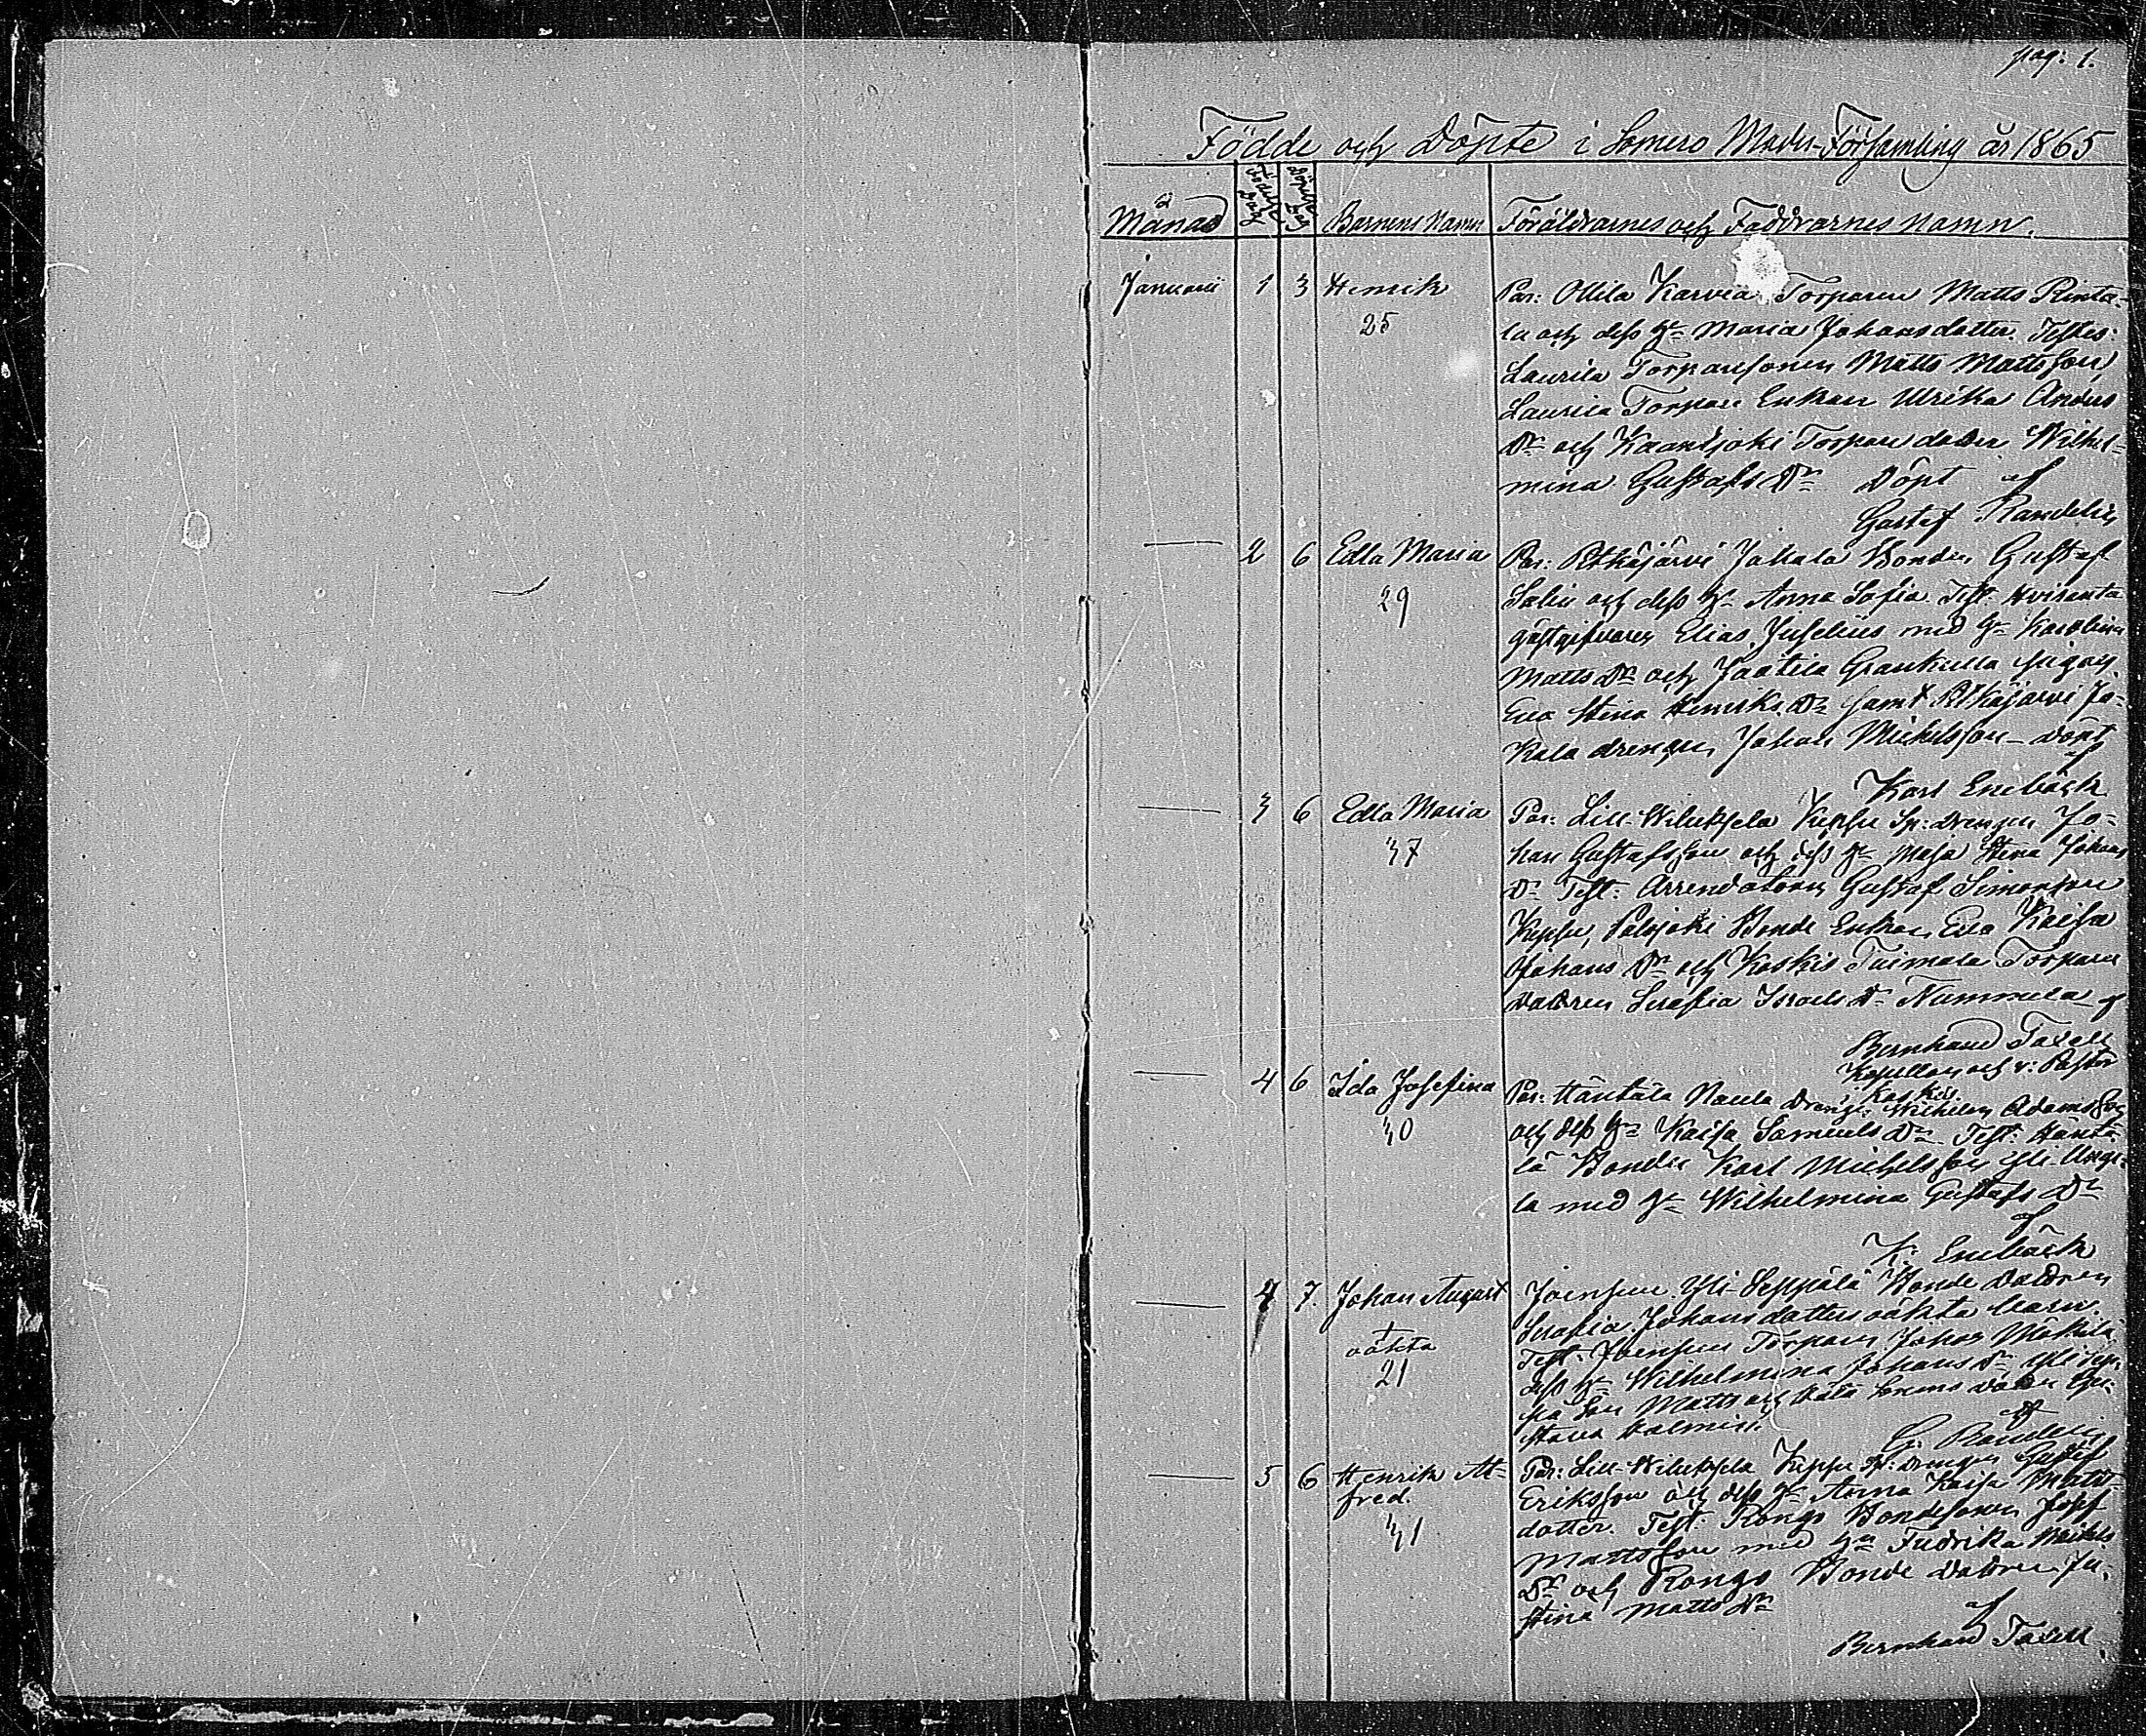 pag: 1.
Födde och Döpte i Somero Moder-Församling år 1865
Månad Födelse dag Döpelse dag Barnens Namn Föräldrarnes och Faddrarnes namn.
Januarii 1 3 Henrik Par: Ollila Karvea Torparen Matts Rinta-
25 la och dess h:u Maria Johansdotter. Testes:
Laurila Torparesonen Matts Mattsson,
Laurila Torpare Enkan Ulrika Anders
Dr och Kaantjoki Torpare dottren Wilhel-
mina Gustafs Dr Döpt af
Gustaf Randelin
2 6 Edla Maria Par: Pitkäjärvi Jakala Bonden Gustaf
29 Salin och dess h:u Anna Sofia. Test: Hviranta
gästgifvaren Elias Juselius med h:u Karolina
Matts Dr och Jaatila Grankulla pigan
Eva Stina Henriks Dr samt Pitkäjärvi Ja-
kala drengen Johan Michelsson - Döpt
af
Karl Enebäck
3 6 Edla Maria Par: Lill-Wiluksela Sp: drengen Jo-
37 han Gustafsson och dess h:u Maja Stina Johans
Dr Test: Arrendatorn Gustaf Simonsson
Palojoki Bonde Enkan Eva Kaisa
Johans Dr och Koskis Tuimala Torpare
dottren Serafia Israels Dr Nummela af
Bernhard Taxell
Kapellan och v: Pastor
Koskis
4 6 Ida Josefina Par: Häntälä Naula drengen Wilhelm Adamsson
40 och dess h:u Kaisa Samuels Dr Test: Häntä-
lä Bonden Karl Michelsson
la med h:u Wilhelmina Gustafs Dr
af
K. Enebäck
4 7. Johan August Joensuu Yli-Seppälä Bonde dottren
+ Serafia Johansdotters oäkta barn.
oäkta Test: Joensuu Torparen Johan Mäkilä
21 dess h:u Wilhelmina Johans Dr Yli Sep-
son Matts och
af
G: Randelin
5 6 Henrik Al- Par: Lill-Wiluksela Sp: drengen Gustaf
fred. Eriksson och dess h:u Anna Kaisa Matts-
41 dotter. Test: Rongo Bondesonen Josef
Mattsson med h:u Fredrika Michels
Dr och Rongo Bonde dottren Ju-
stina Matts Dr
af
Bernhard Taxell